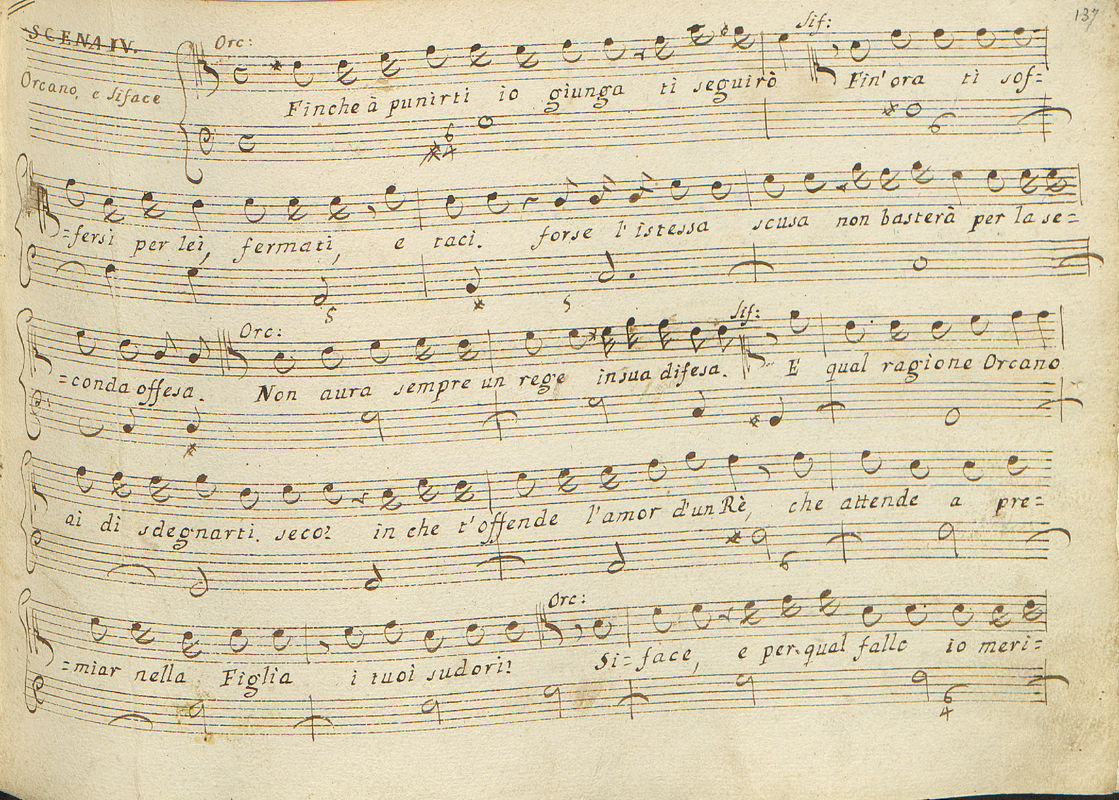 137
SCENA IV.
Orc: Sif:
Orcano, e Siface
Finche à punirti io giunga ti seguirò Fin'ora ti sof=
6 4 6
=fersi per lei, fermati, e taci. forse l'istessa scusa non basterà per la se=
Orc: Sif:
=conda offesa. Non aura sempre un rege in sua difesa. E qual ragione Orcano
ai di sdegnarti seco? in che t'offende l'amor d'un Rè, che attende a pre=
6
Orc:
=miar nella Figlia i tuoi sudori? Si=face, e per qual fallo io meri=
6 4